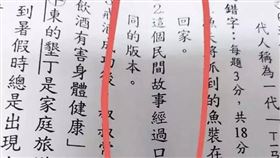 代人稱為一代「丁
錯字：每題3分，共18分
夫將抓到的魚裝在
回家。
2.這個民間故事經過口
同的版本。
飲酒有害身體健康」
東的墾丁是家庭旅遊
到暑假時總是出現